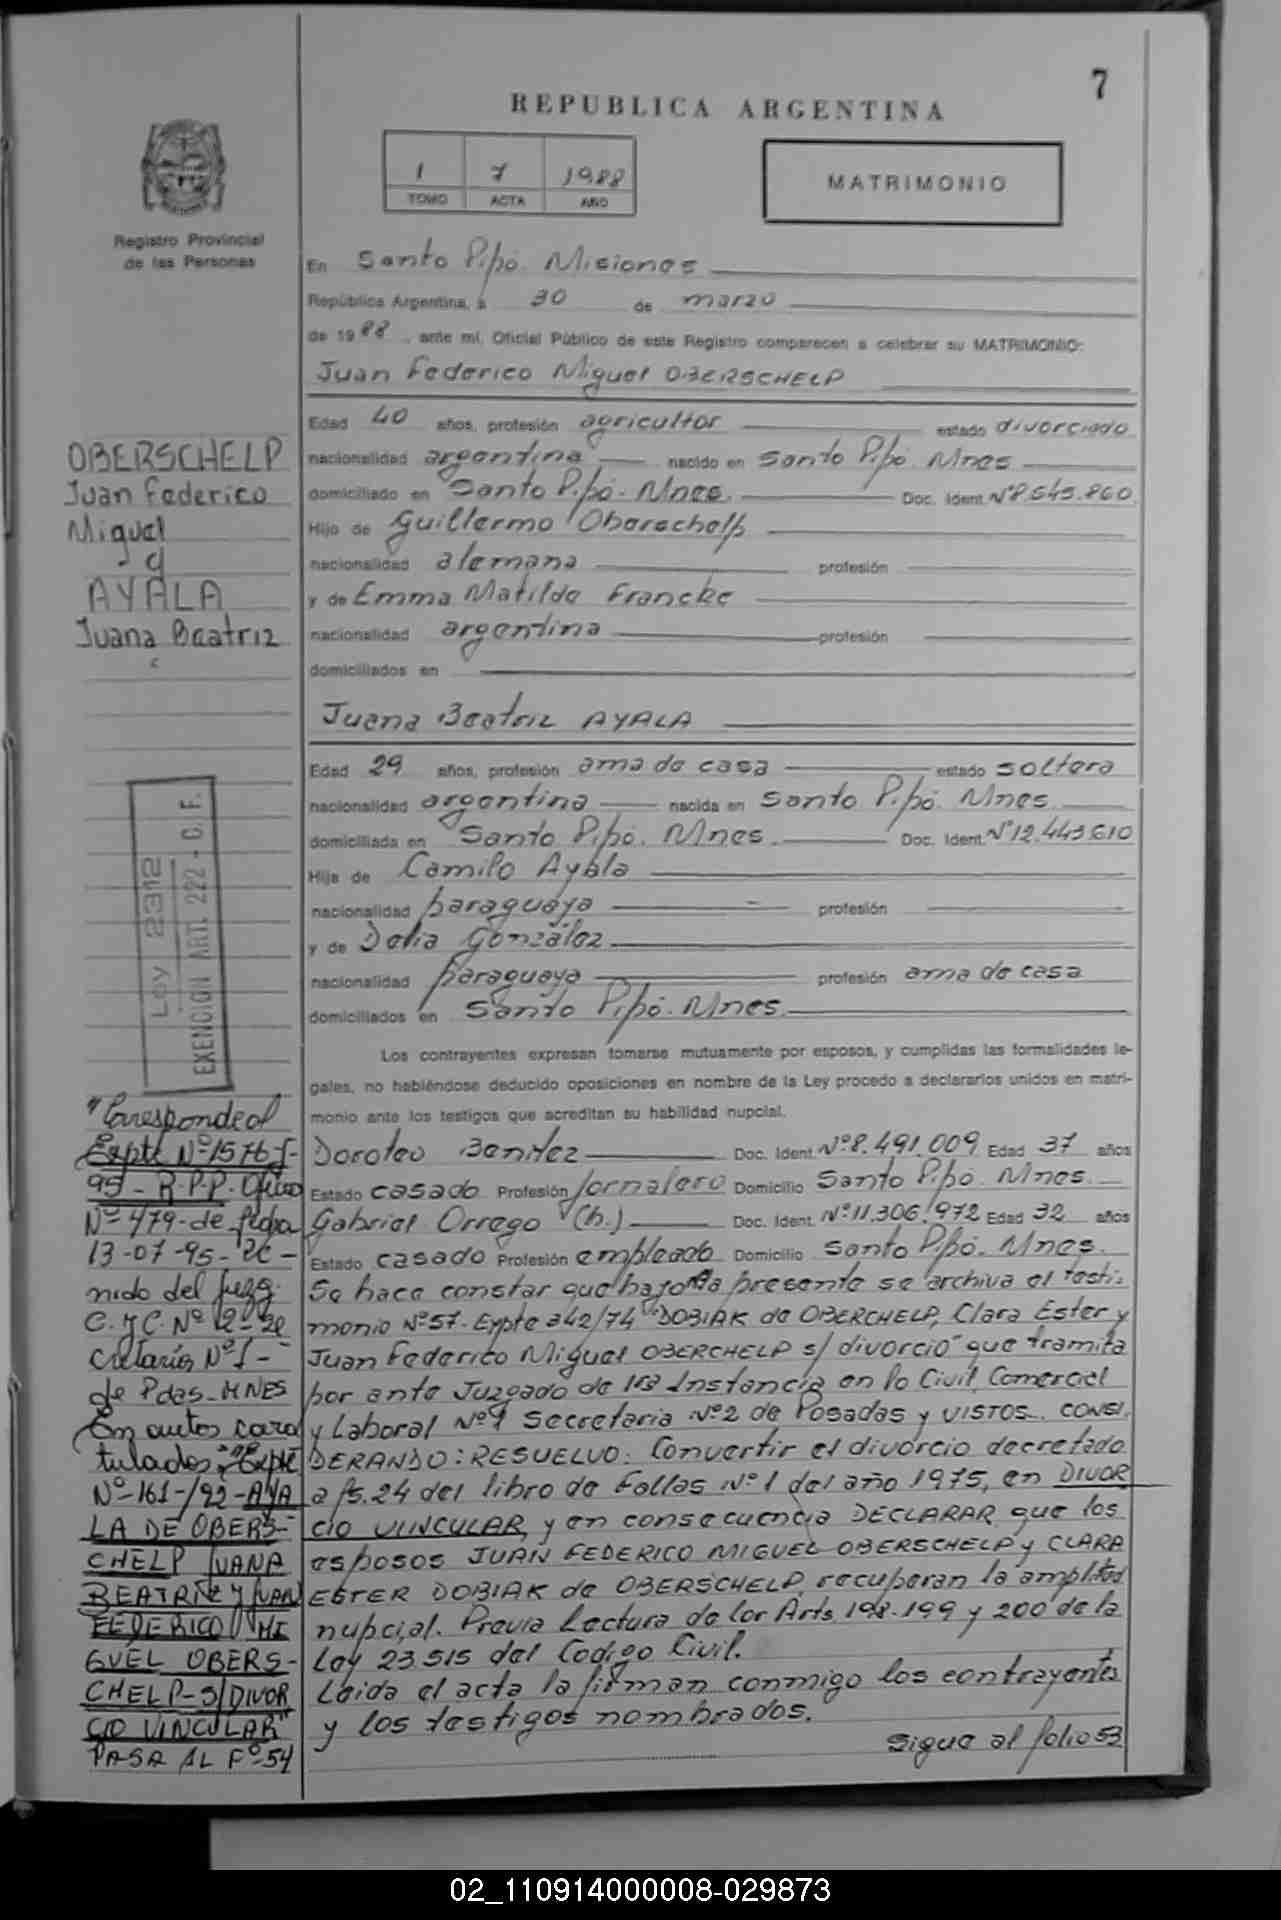 7
REPUBLICA ARGENTINA
1 7 1988
TOMO ACTA AÑO
MATRIMONIO
Registro Provincial
de las Personas
En Santo Pipó. Misiones
República Argentina, a 30 de marzo
de 1988, ante mí, Oficial Público de este Registro comparecen a celebrar su MATRIMONIO:
Juan Federico Miguel OBERSCHELP
Edad 40 años, profesión agricultor estado divorciado
nacionalidad argentina nacido en Santo Pipó. Mnes
domiciliado en Santo Pipó. Mnes. Doc. Ident. Nº8.545.860
Hijo de Guillermo Oberschelp
nacionalidad alemana profesión
y de Emma Matilde Francke
nacionalidad argentina profesión
domiciliados en
Juana Beatriz AYALA
Edad 29 años, profesión ama de casa estado soltera
nacionalidad argentina nacida en Santo Pipó. Mnes
domiciliada en Santo Pipó. Mnes. Doc. Ident. Nº12.443.610
Hija de Camilo Ayala
nacionalidad paraguaya profesión
y de Delia González
nacionalidad paraguaya profesión ama de casa
domiciliados en Santo Pipó. Mnes.
Los contrayentes expresan tomarse mutuamente por esposos, y cumplidas las formalidades le-
gales, no habiéndose deducido oposiciones en nombre de la Ley procedo a declararlos unidos en matri-
monio ante los testigos que acreditan su habilidad nupcial.
Doroteo Benitez Doc. Ident. Nº8.491.009 Edad 37 años
Estado casado Profesión jornalero Domicilio Santo Pipó. Mnes.
Gabriel Orrego (h.) Doc. Ident. Nº11.306.972 Edad 32 años
Estado casado Profesión empleado Domicilio Santo Pipó. Mnes.
Se hace constar que bajo la presente se archiva el testi-
monio Nº57. Expte 242/74 "DOBIAK de OBERCHELP, Clara Ester y
Juan Federico Miguel OBERCHELP s/ divorcio" que tramita
por ante Juzgado de 1ra Instancia en lo Civil, Comercial
y Laboral Nº1 Secretaria Nº2 de Posadas y VISTOS... CONSI-
DERANDO: RESUELVO: Convertir el divorcio decretado
a fs. 24 del libro de Fallos Nº1 del año 1975, en DIVOR
CIO VINCULAR, y en consecuencia DECLARAR que los
esposos JUAN FEDERICO MIGUEL OBERSCHELP y CLARA
ESTER DOBIAK de OBERSCHELP, recuperan la amplitud
nupcial. Previa Lectura de los Arts. 198-199 y 200 de la
Ley 23.515 del Codigo Civil.
Leida el acta la firman conmigo los contrayentes
y los testigos nombrados.
Sigue al folio 53
OBERSCHELP
Juan Federico
Miguel
y
AYALA
Juana Beatriz
Ley 2312
EXENCION ART. 222 - C.F.
"Corresponde al
Expte Nº1576-J-
95 - R.P.P. Oficio
Nº 479 - de fecha
13-07-95- Ve-
nido del Juzg.
C. y C. Nº 2 - Se
cretaría Nº1 -
de Pdas - MNES
En autos cara
tulados: "Expte
Nº-161-/92-AYA
LA DE OBERS-
CHELP JUANA
BEATRIZ Y JUAN
FEDERICO MI
GUEL OBERS-
CHELP-S/DIVOR
CIO VINCULAR"
PASA AL Fº-54
02_110914000008-029873